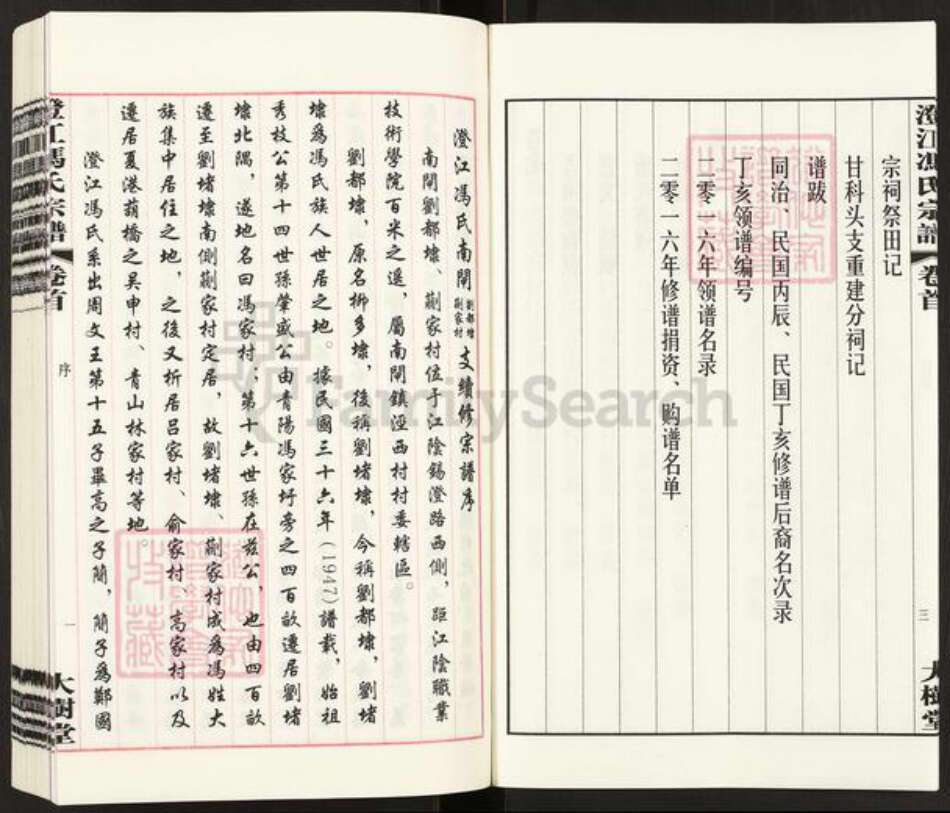 澄江馮氏宗譜
卷首
三
大樹堂
宗祠祭田记
甘科头支重建分祠记
谱跋
同治、民国丙辰、民国丁亥修谱后裔名次录
丁亥领谱编号
二零一六年领谱名录
二零一六年修谱捐资、购谱名单
澄江馮氏南閘劉都埭蒯家村支續修宗譜序
南閘劉都埭、蒯家村位于江陰錫澄路西側，距江陰職業
技術學院百米之遥，屬南閘鎮涇西村村委轄區。
劉都埭，原名柳多埭，後稱劉堵埭，今稱劉都埭，劉堵
埭爲馮氏族人世居之地。據民國三十六年(1947)譜載，始祖
秀枝公第十四世孫肇盛公由青陽馮家圩旁之四百畝遷居劉堵
埭北隅，遂地名曰馮家村；第十六世孫在兹公，也由四百畝
遷至劉堵埭南側蒯家村定居，故劉堵埭、蒯家村成爲馮姓大
族集中居住之地，之後又析居吕家村、俞家村、高家村以及
遷居夏港葫橋之吴申村、青山林家村等地。
澄江馮氏系出周文王第十五子畢高之子簡，簡子爲鄭國
澄江馮氏宗譜
卷首
序
一
大樹堂
FamilySearch